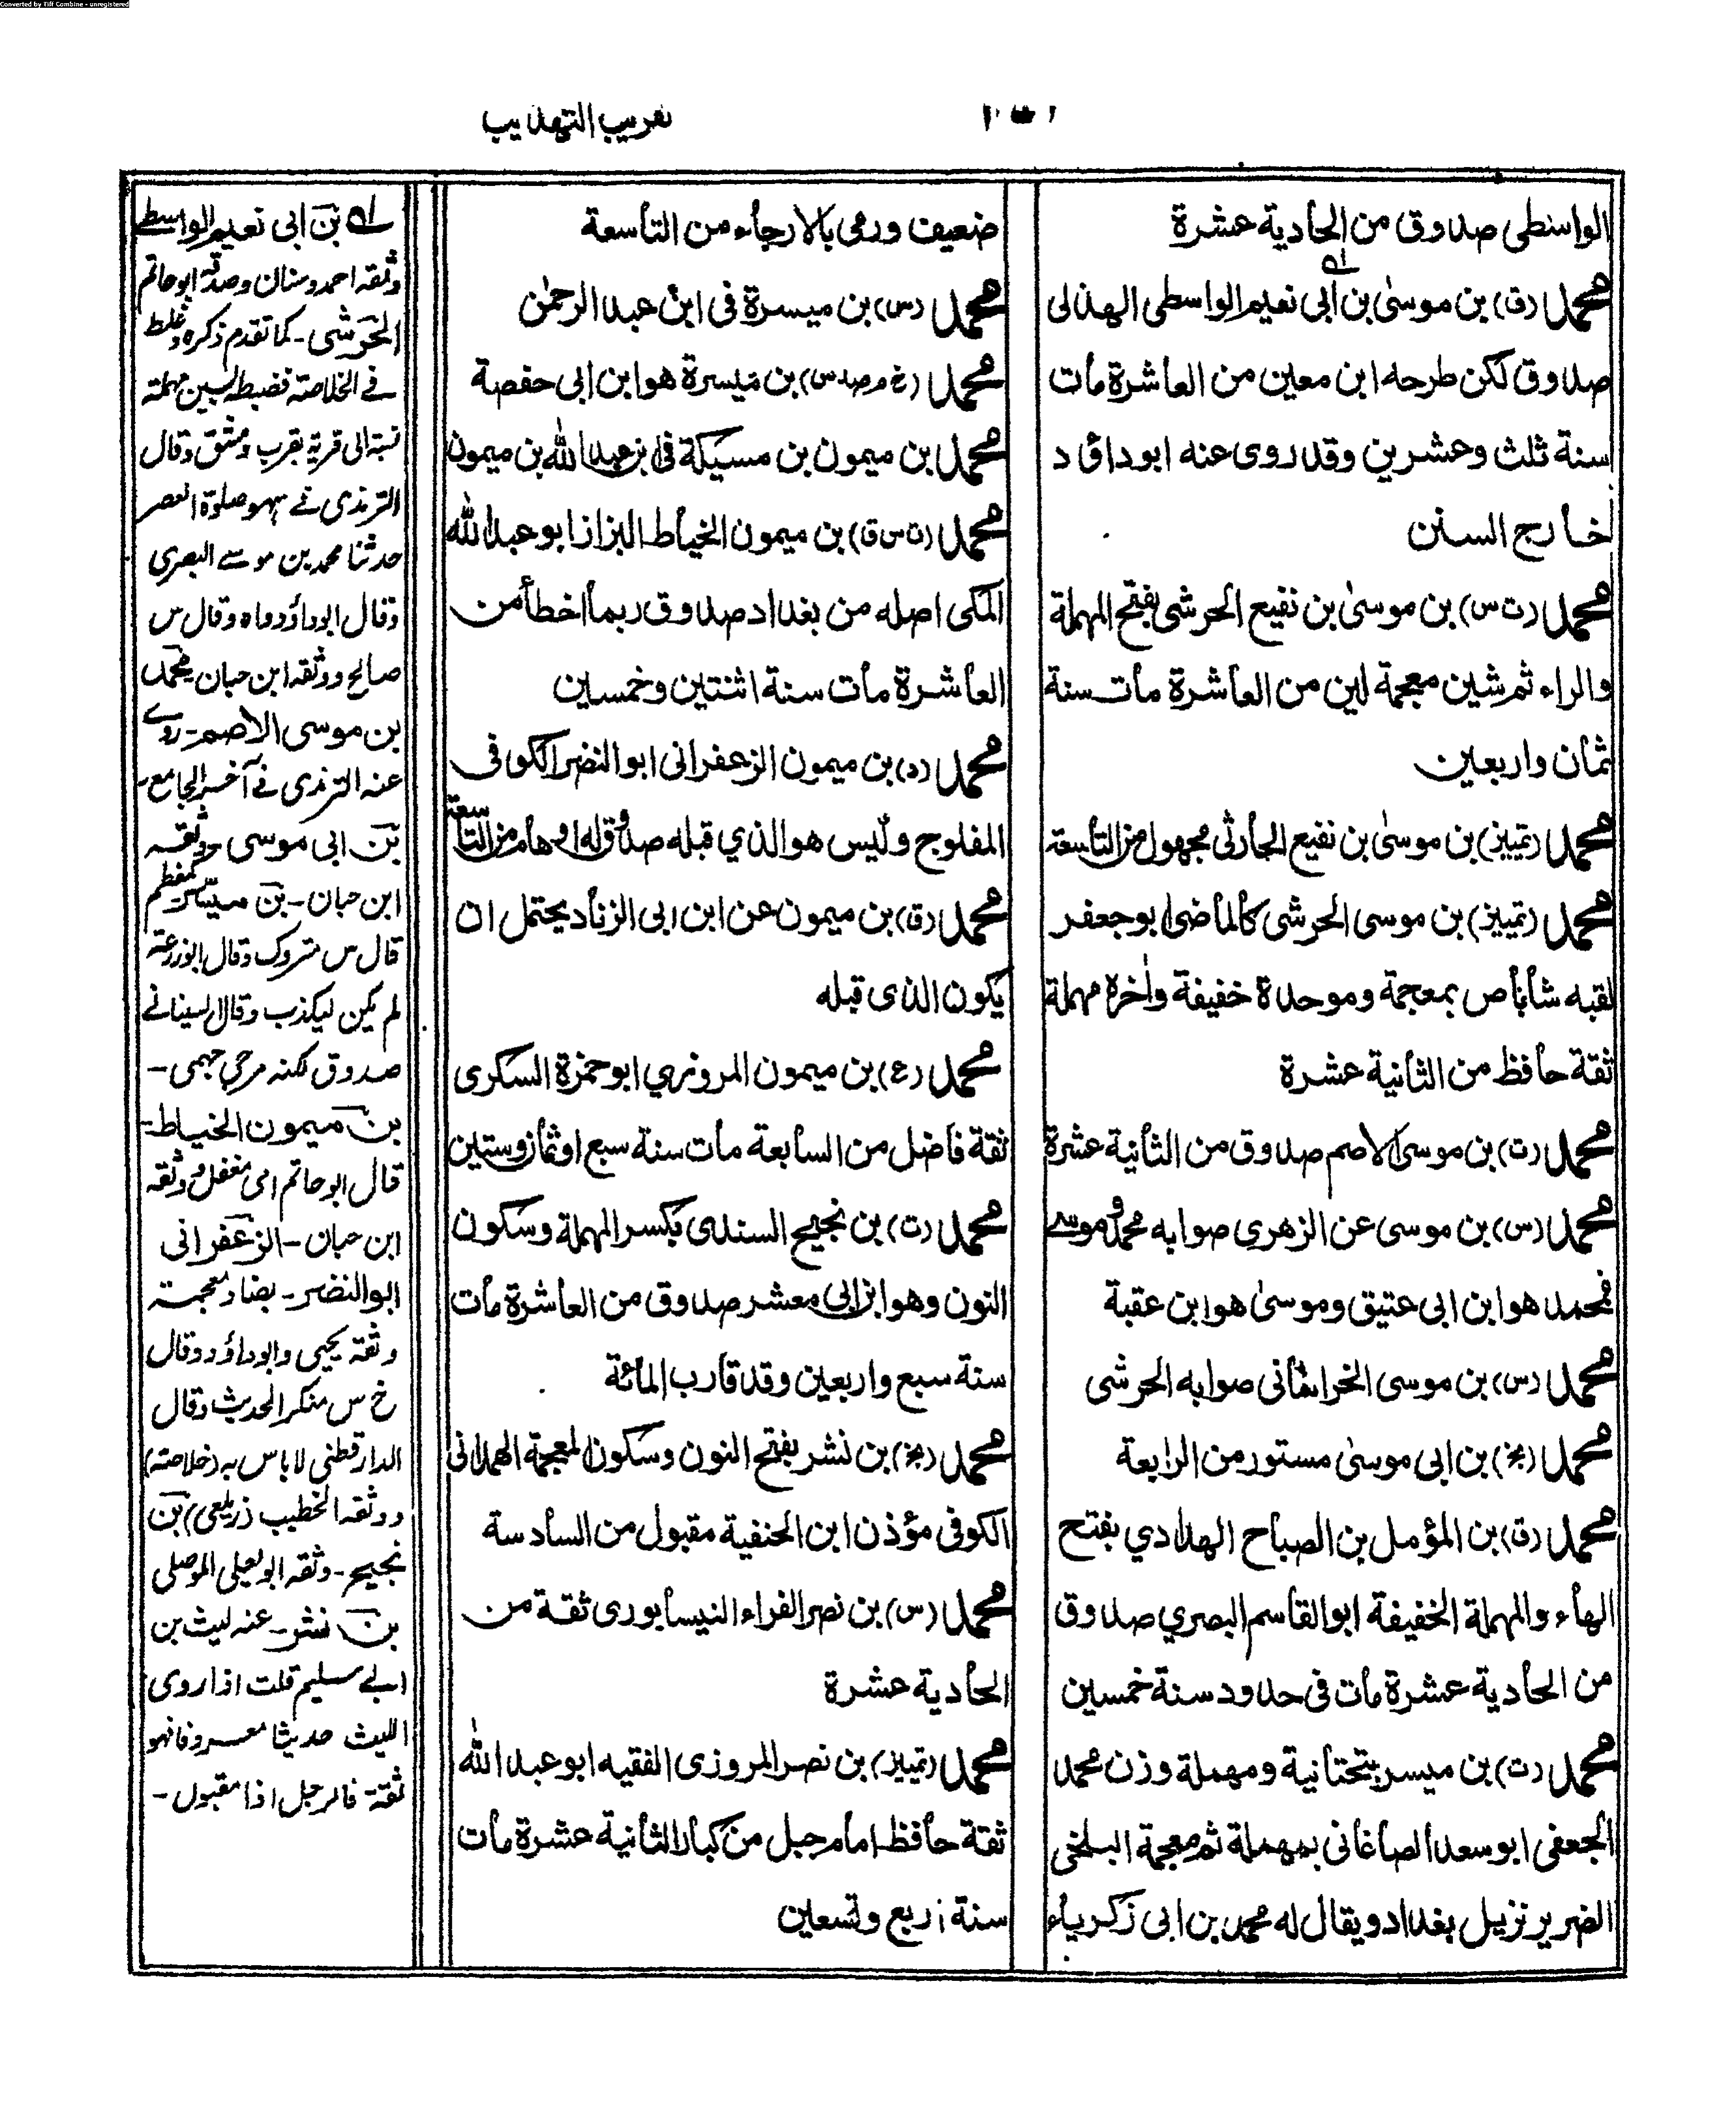 Converted by Tiff Combine - unregistered
تقريب التهذيب
الواسطى صدوق من الحادية عشرة
محمد (ق) بن موسىٰ بن ابى نعيم الواسطى الهذلى
صدوق لكن طرحه ابن معين من العاشرة مات
سنة ثلث وعشرين وقد روى عنه ابوداؤد
خارج السنن
محمد (ت س) بن موسىٰ بن نفيع الحرشى بفتح المهملة
والراء ثم شين معجمة لين من العاشرة مات سنة
ثمان واربعين
محمد (تمييز) بن موسىٰ بن نفيع الحارثى مجهول من التاسعة
محمد (تمييز) بن موسى الحرشى كالماضى ابو جعفر
لقبه شاباص بمعجمة وموحدة خفيفة واٰخره مهملة
ثقة حافظ من الثانية عشرة
محمد (ت) بن موسى الاصم صدوق من الثانية عشرة
محمد (س) بن موسى عن الزهري صوابه محمد وموسے
فمحمد هو ابن ابى عتيق وموسىٰ هو ابن عقبة
محمد (س) بن موسى الخراسانى صوابه الحرشى
محمد (بخ) بن ابى موسىٰ مستور من الرابعة
محمد (ق) بن المؤمل بن الصباح الهدادي بفتح
الهاء والمهملة الخفيفة ابو القاسم البصري صدوق
من الحادية عشرة مات فى حدود سنة خمسين
محمد (ت) بن ميسر بتحتانية ومهملة وزن محمد
الجعفى ابو سعد الصاغانى بمهملة ثم معجمة البلخى
الضرير نزيل بغداد ويقال له محمد بن ابى زكرياء
ضعيف ورمى بالارجاء من التاسعة
محمد (س) بن ميسرة فى ابن عبد الرحمٰن
محمد (خ م صد س) بن ميسرة هو ابن ابى حفصة
محمد بن ميمون بن مسيكة فى ابن عبد الله بن ميمون
محمد (ت س ق) بن ميمون الخياط البزاز ابو عبد الله
المكى اصله من بغداد صدوق ربما اخطأ من
العاشرة مات سنة اثنتين وخمسين
محمد (د) بن ميمون الزعفرانى ابو النضر الكوفى
المفلوج وليس هو الذي قبله صدوق له اوهام من التاسعة
محمد (ق) بن ميمون عن ابن ابى الزناد يحتمل ان
يكون الذى قبله
محمد (ع) بن ميمون المروزي ابو حمزة السكرى
ثقة فاضل من السابعة مات سنة سبع او ثمان وستين
محمد (ت) بن نجيح السندى بكسر المهملة وسكون
النون وهو ابن ابى معشر صدوق من العاشرة مات
سنة سبع واربعين وقد قارب المائة
محمد (بخ) بن نشر بفتح النون وسكون المعجمة الهمدانى
الكوفى مؤذن ابن الحنفية مقبول من السادسة
محمد (س) بن نصر الفراء النيسابورى ثقة من
الحادية عشرة
محمد (تمييز) بن نصر المروزى الفقيه ابو عبد الله
ثقة حافظ امام جبل من كبار الثانية عشرة مات
سنة اربع وتسعين
بن ابى نعيم الواسطے
وثقه احمد وسنان وصدقه ابو حاتم
الحرشى - كما تقدم ذكره وغلط
فے الخلاصة فضبطه بسين مهملة
نسبة الى قرية بقرب دمشق وقال
الترمذى فے سهو صلوة العصر
حدثنا محمد بن موسے البصرى
وقال ابوداؤد وهاه وقال س
صالح ووثقه ابن حبان محمد
بن موسى الاصم - روے
عنه الترمذى فے آخر الجامع -
بن ابى موسى - وثقه
ابن حبان - بن ميسر كمعظم
قال س متروك وقال ابو زرعة
لم يكن ليكذب وقال
صدوق لكنه مرجى جهمى -
بن ميمون الخياط -
قال ابو حاتم امى مغفل ووثقه
ابن حبان - الزعفرانى
ابو النضر - بضاد معجمة
وثقه يحيى وابوداؤد وقال
خ س منكر الحديث وقال
الدارقطنى لا باس به (خلاصة)
ووثقه الخطيب (زيلعى) بن
نجيح - وثقه ابو يعلى الموصلى
بن نشر - عنه ليث بن
ابے سليم قلت اذا روى
الليث حديثا معروفا فهو
ثقة فالرجل اذا مقبول -